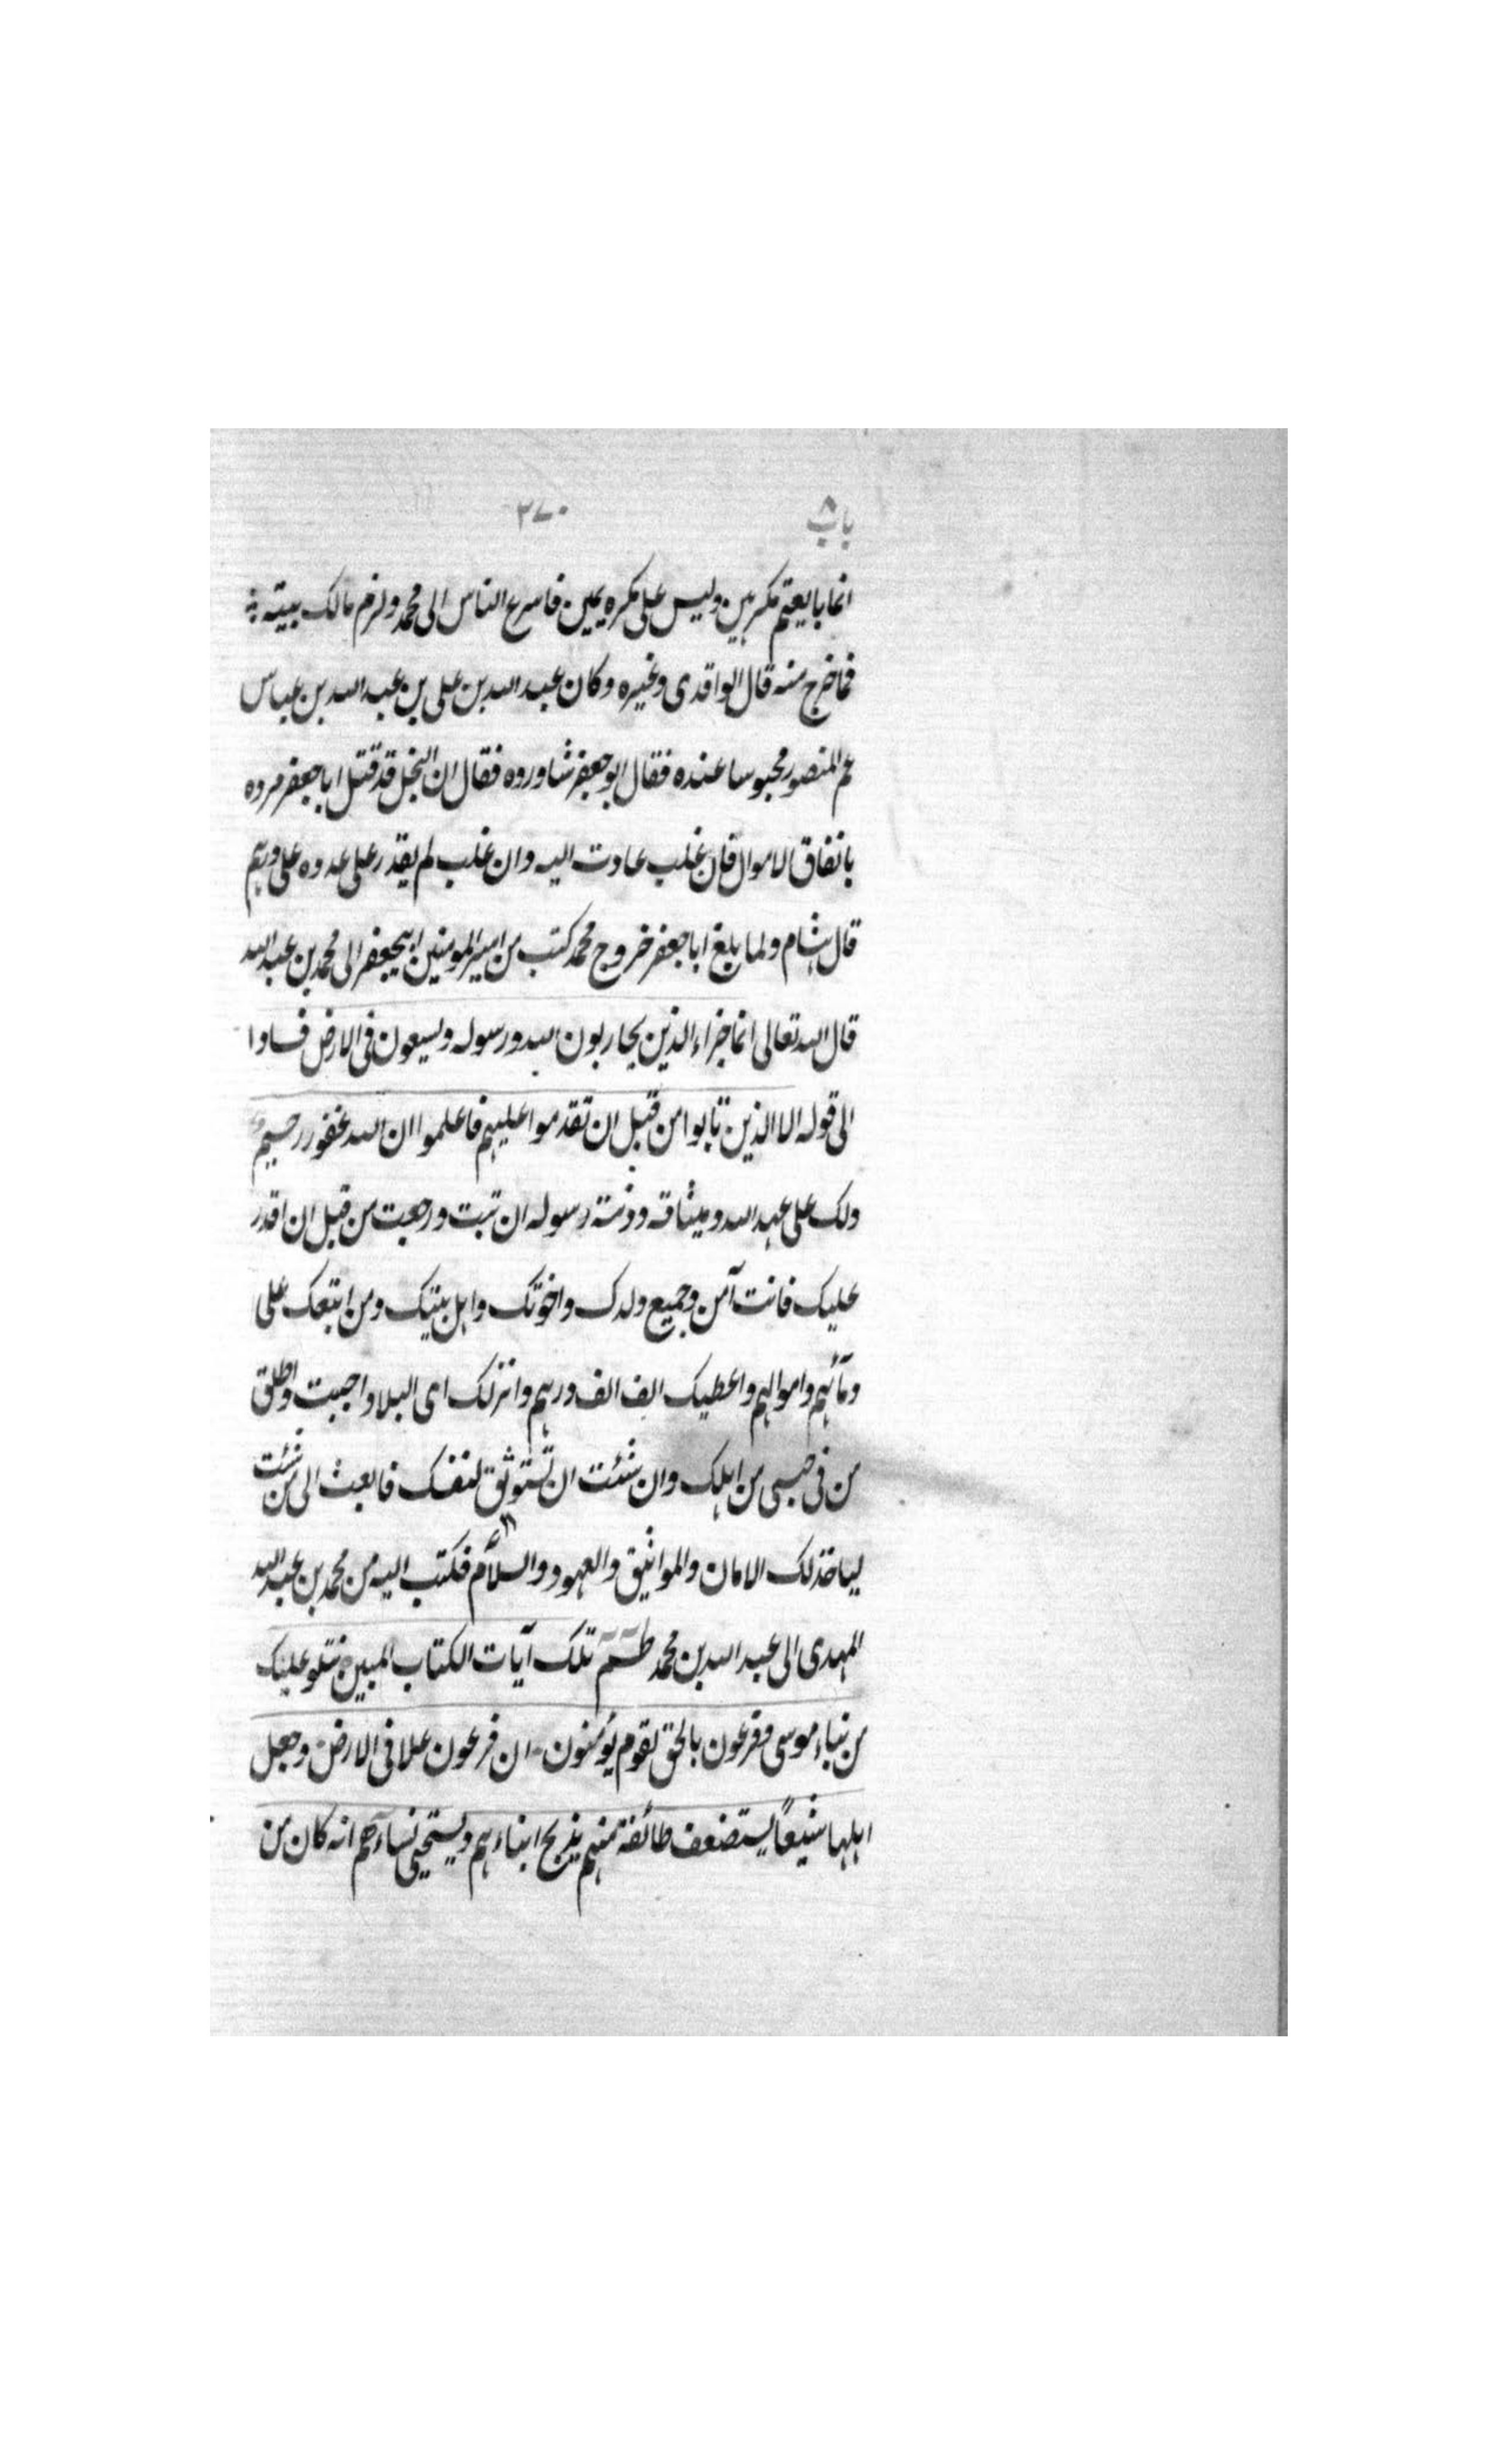 باب ٨ ٣٧٠
انما بايعتم مكرهين وليس على مكره يمين فاسرع الناس الى محمد ولزم مالك بيته
فما خرج منه قال الواقدى وغيره وكان عبد الله بن على بن عبد الله بن عباس
عم المنصور محبوسا عنده فقال ابو جعفر شاوروه فقال ان البخل قد قتل ابا جعفر مروه
بانفاق الاموال فان غلب عادت اليه وان غلب لم يقدر على عدوه على درهم
قال هشام ولما بلغ ابا جعفر خروج محمد كتب من امير المومنين ابيجعفر الى محمد بن عبد الله
قال الله تعالى انما جزاء الذين يحاربون الله ورسوله ويسعون فى الارض فسادا
الى قوله الا الذين تابوا من قبل ان تقدروا عليهم فاعلموا ان الله غفور رحيم
ولك على عهد الله وميثاقه وذمة رسوله ان تبت ورجعت من قبل ان اقدر
عليك فانت آمن وجميع ولدك واخوتك واهل بيتك ومن اتبعك على
دمآئهم واموالهم واعطيك الف الف درهم وانزلك اى البلاد احببت واطلق
من فى حبسى من اهلك وان شئت ان تستوثق لنفسك فابعث الى من شئت
لياخذ لك الامان والمواثيق والعهود والسلام فكتب اليه من محمد بن عبد الله
المهدى الى عبد الله بن محمد طسٓمٓ تلك آيات الكتاب المبين نتلو عليك
من نباء موسى وفرعون بالحق لقوم يؤمنون ان فرعون علا فى الارض وجعل
اهلها شيعاً يستضعف طائفة منهم يذبح ابناءهم ويستحيى نساءهم انه كان من